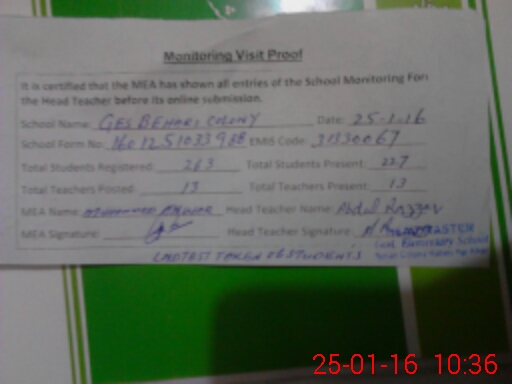 Monitoring Visit Proof
It is certified that the MEA has shown all entries of the School Monitoring For
the Head Teacher before its online submission.
School Name: GES BEHARI COLONY Date: 25-1-16
School Form No: EMIS Code: 31330067
Total Students Registered: 263 Total Students Present: 227
Total Teachers Posted: 13 Total Teachers Present: 13
MEA Name: MUHAMMAD Head Teacher Name: Abdul Razzaq
MEA Signature: Head Teacher Signature:
HEADMASTER
Govt. Elementary School
LND TEST TAKEN OF STUDENTS
25-01-16 10:36